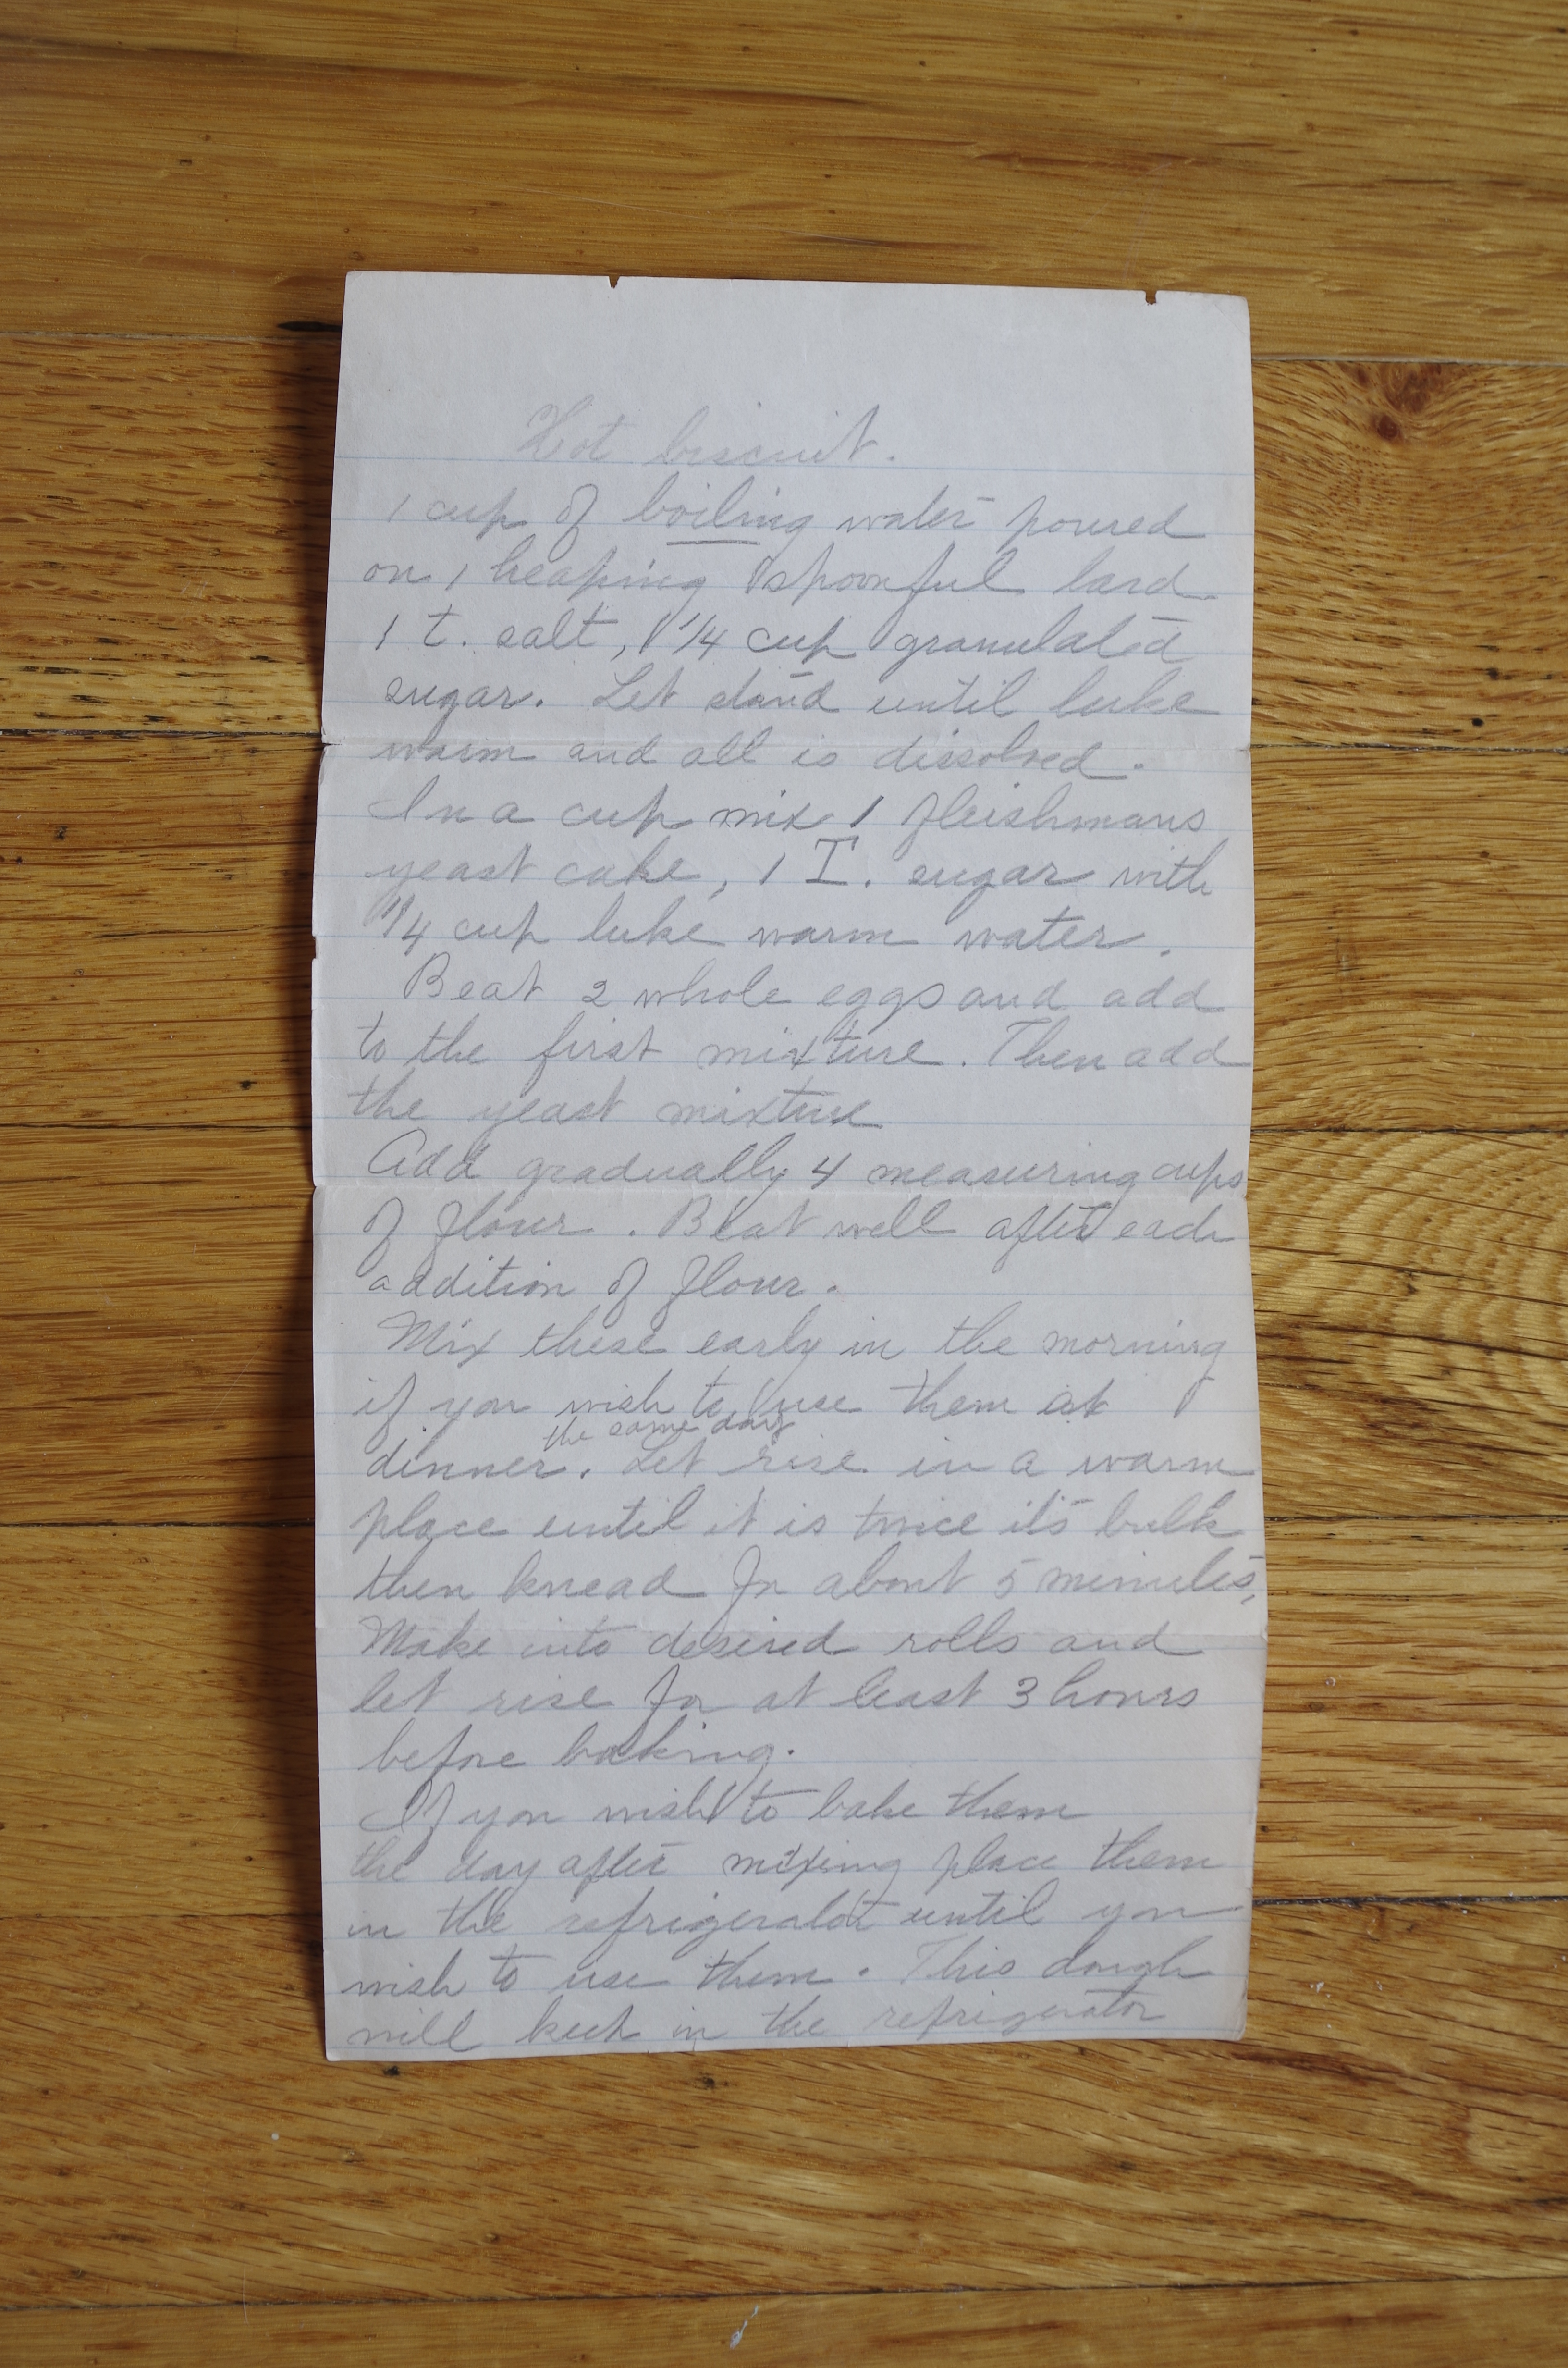 Hot biscuit.
1 cup of boiling water poured
on 1 heaping spoonful lard
1 t. salt, 1/4 cup granulated
sugar. Let stand until luke
warm and all is dissolved.
In a cup mix 1 fleishmans
yeast cake, 1 T. sugar with
1/4 cup luke warm water.
Beat 2 whole eggs and add
to the first mixture. Then add
the yeast mixture
Add gradually 4 measuring cups
of flour. Beat well after each
addition of flour.
Mix these early in the morning
if you wish to use them at
the same day
dinner. Let rise in a warm
place until it is twice its bulk
then knead for about 5 minutes,
Make into desired rolls and
let rise for at least 3 hours
before baking.
If you wish to bake them
the day after mixing place them
in the refrigerator until you
wish to use them. This dough
will keep in the refrigerator